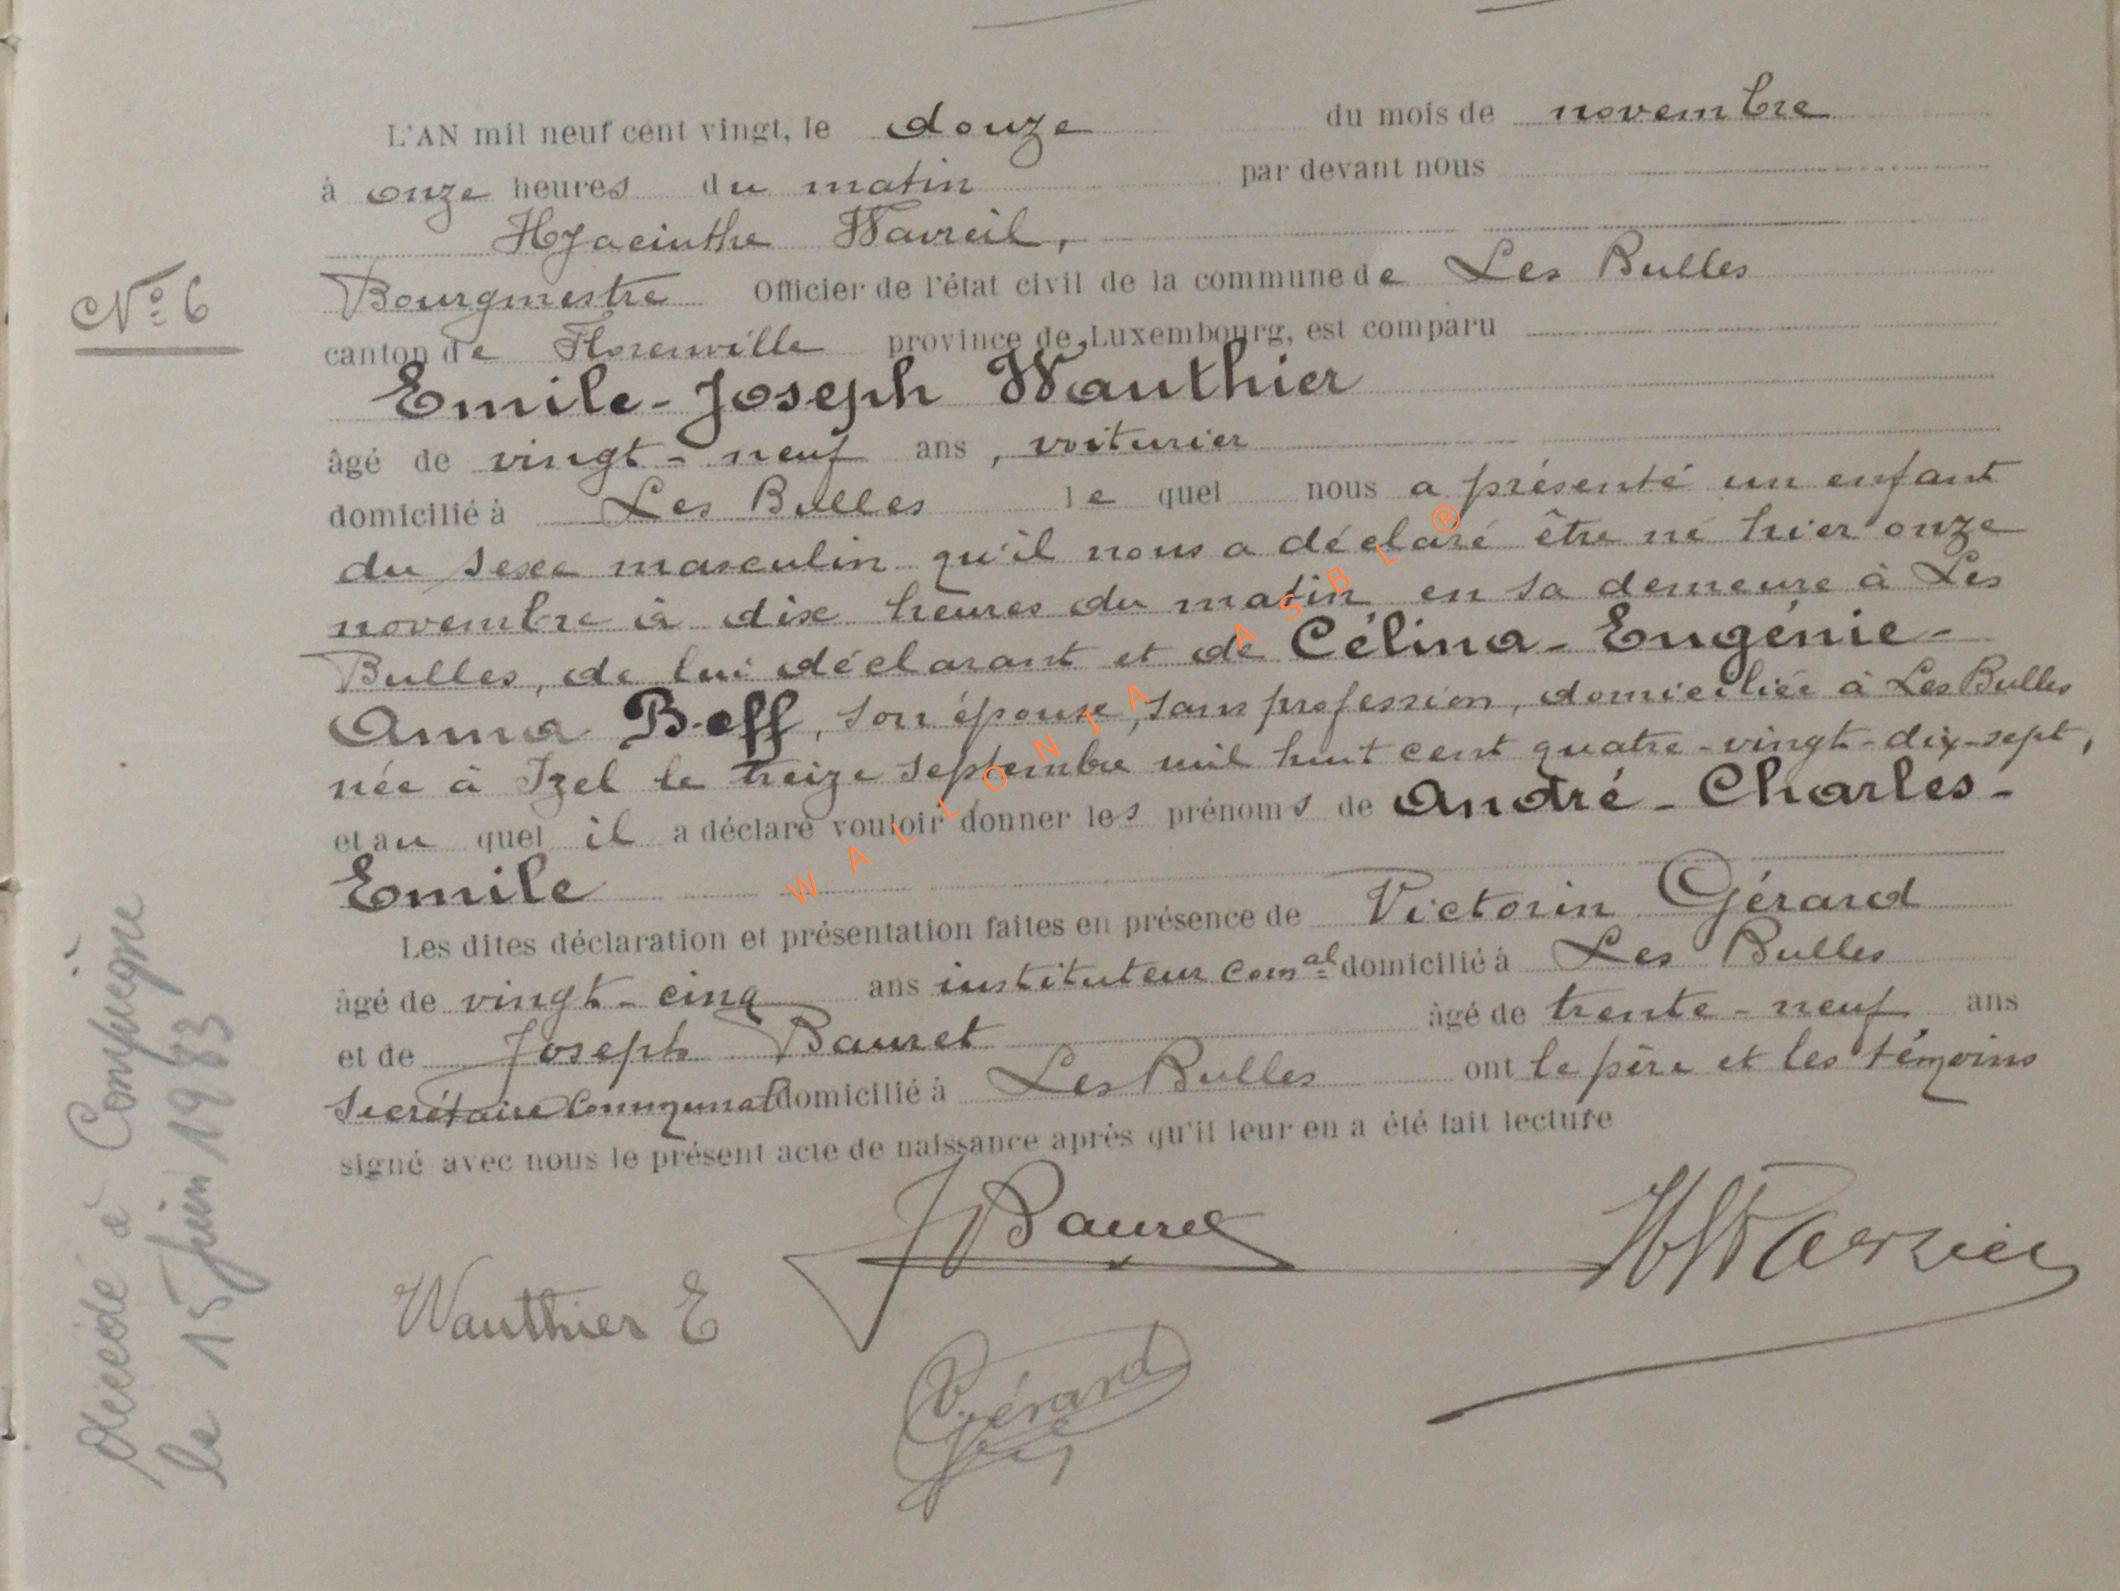 L'AN mil neuf cent vingt, le douze du mois de novembre
à onze heures du matin par devant nous
Hyacinthe Wavreil,
Bourgmestre Officier de l'état civil de la commune de Les Bulles
canton de Florenville province de Luxembourg, est comparu
Emile-Joseph Wauthier
âgé de vingt-neuf ans, voiturier
domicilié à Les Bulles le quel nous a présenté un enfant
du sexe masculin qu'il nous a déclaré être né hier onze
novembre à dix heures du matin en sa demeure à Les
Bulles, de lui déclarant et de Célina-Eugénie-
Anna Beff, son épouse, sans profession, domiciliée à Les Bulles
née à Izel le treize septembre mil huit cent quatre-vingt-dix-sept,
et au quel il a déclaré vouloir donner les prénoms de André-Charles-
Emile
Les dites déclaration et présentation faites en présence de Victorin Gérard
âgé de vingt-cinq ans instituteur comal domicilié à Les Bulles
et de Joseph Bauret âgé de trente-neuf ans
Secrétaire Communal domicilié à Les Bulles ont le père et les témoins
signé avec nous le présent acte de naissance après qu'il leur en a été fait lecture
J Bauret
Wauthier E
V. Gérard
No 6
décédé à Compiègne
le 15 juin 1983
WALLONIA ASBL ®